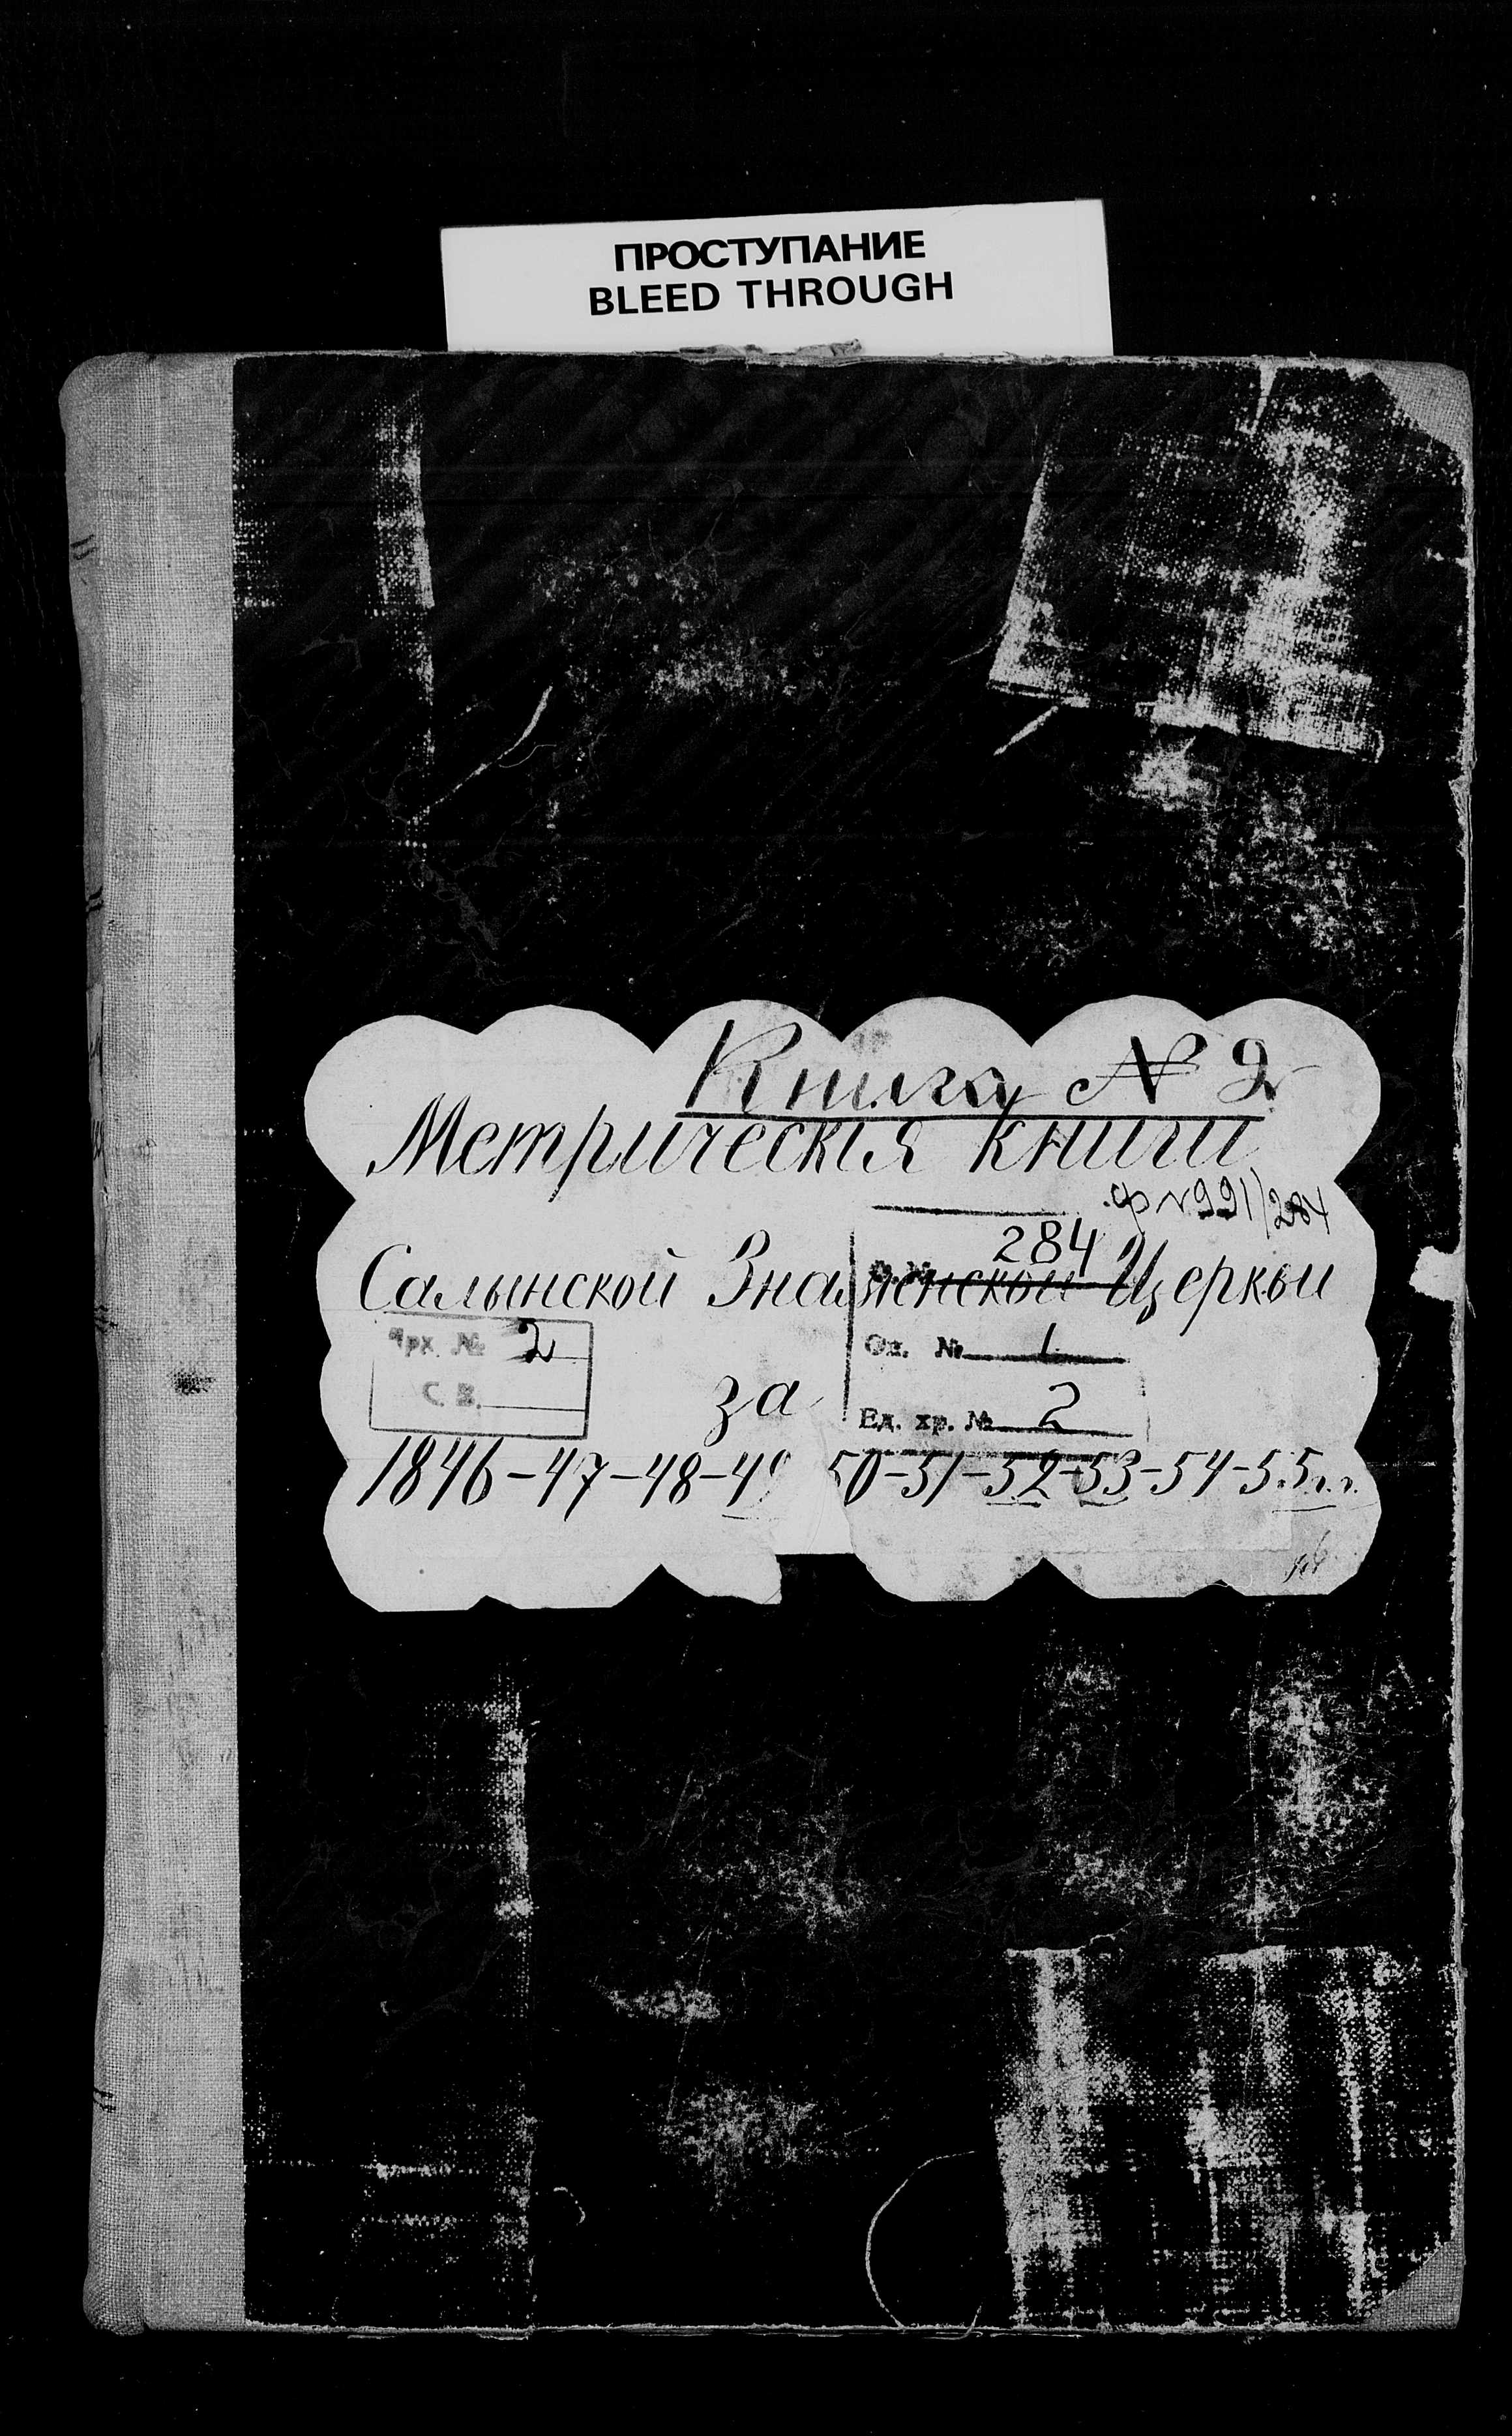 ПРОСТУПАНИЕ
BLEED THROUGH
Книга № 2
Метрическія книги
ф № 991/284
284
Салынской Знаменской Церкви
Арх. № 2
Оп. № 1
С. В.
за
Ед. хр. № 2
1846-47-48-49 50-51-52-53-54-55 г.г.